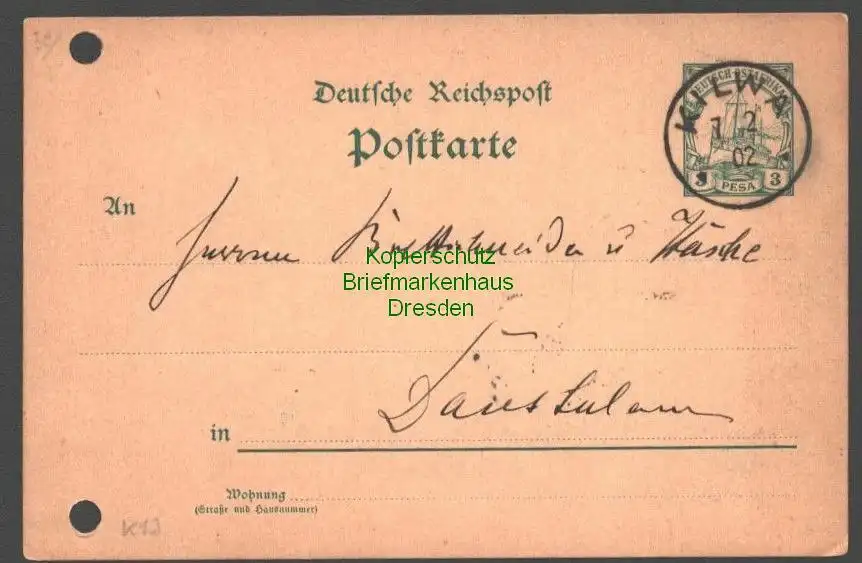 Deutsche Reichspost
Postkarte
DEUTSCH-OSTAFRIKA
KILWA
7 2
02
3 PESA 3
An
Herren Brettschneider u Hasche
Kopierschutz
Briefmarkenhaus
Dresden
in Daressalam
Wohnung
(Straße und Hausnummer)